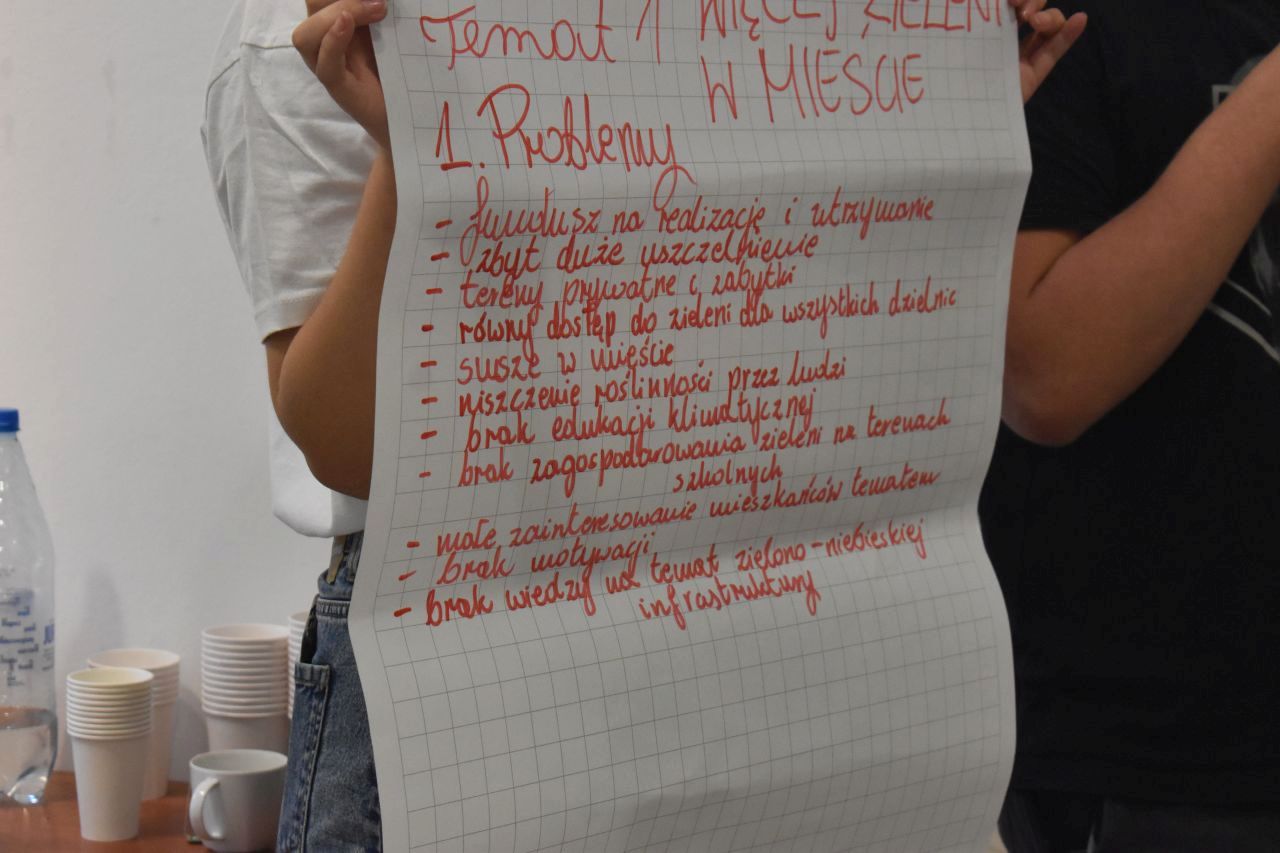 Temat 1 WIĘCEJ ZIELENI
W MIEŚCIE
1. Problemy
- fundusz na realizację i utrzymanie
- zbyt duże uszczelnienie
- tereny prywatne i zabytki
- równy dostęp do zieleni dla wszystkich dzielnic
- susze w mieście
- niszczenie roślinności przez ludzi
- brak edukacji klimatycznej
- brak zagospodarowania zieleni na terenach
szkolnych
- małe zainteresowanie mieszkańców tematem
- brak motywacji
- brak wiedzy na temat zielono-niebieskiej
infrastruktury